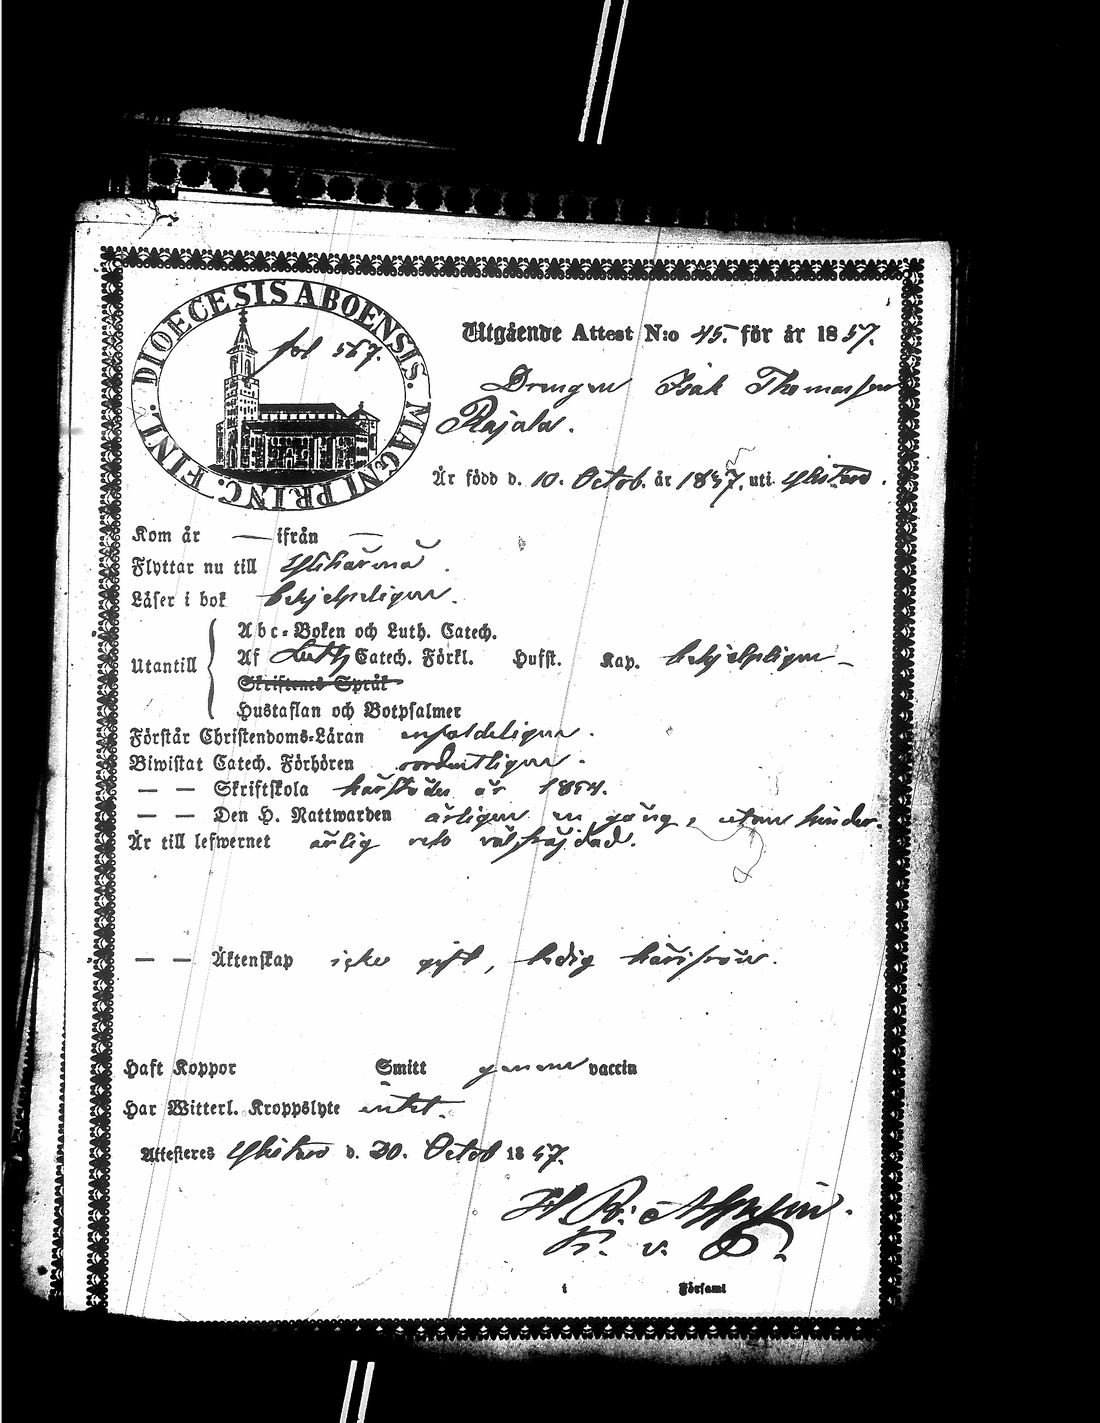 DIOECESIS ABOENSIS. MAGNI PRINC. FINL.
fol 567.
Utgående Attest N:o 45. för år 1857.
Drengen Isak Thomasson
Rajala.
Är född d. 10. Octob. år 1837. uti Ylistaro.
Kom år — ifrån —
Flyttar nu till Ylihärmä.
Läser i bok behjelpeligen.
Abc-Boken och Luth. Catech.
Utantill Af Luth Catech. Förkl. Hufst. Kap. behjelpligen —
Skriftenes Språk
Hustaflan och Botpsalmer
Förstår Christendoms-Läran enfaldeligen.
Biwistat Catech. Förhören ordentligen.
— — Skriftskola härstädes år 1854.
— — Den H. Nattwarden årligen en gång, utan hinder.
Är till lefwernet ärlig och välfräjdad.
— — Äktenskap icke gift, ledig härifrån.
Haft Koppor Smitt genom vaccin
Har Witterl. Kroppslyte intet.
Attesteres Ylistaro d. 30. Octob 1857.
K. v. P.
i Församl